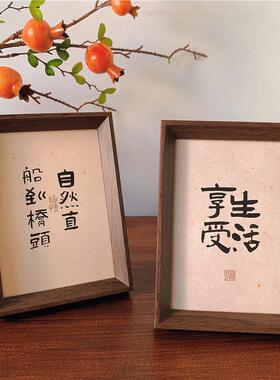 船到橋頭
自然直
享受
生活